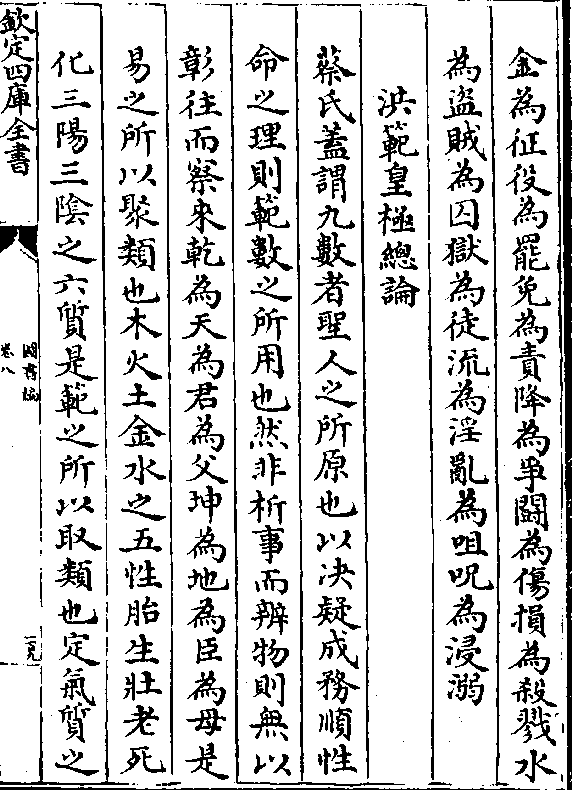 金為征役為罷免為責降為爭鬬為傷損為殺戮水
為盜賊為囚獄為徒流為淫亂為咀呪為浸溺
洪範皇極總論
蔡氏蓋謂九數者聖人之所原也以決疑成務順性
命之理則範數之所用也然非析事而辨物則無以
彰往而察來乾為天為君為父坤為地為臣為母是
易之所以聚類也木火土金水之五性胎生壯老死
化三陽三陰之六質是範之所以取類也定氣質之
欽定四庫全書
圖書編
卷八